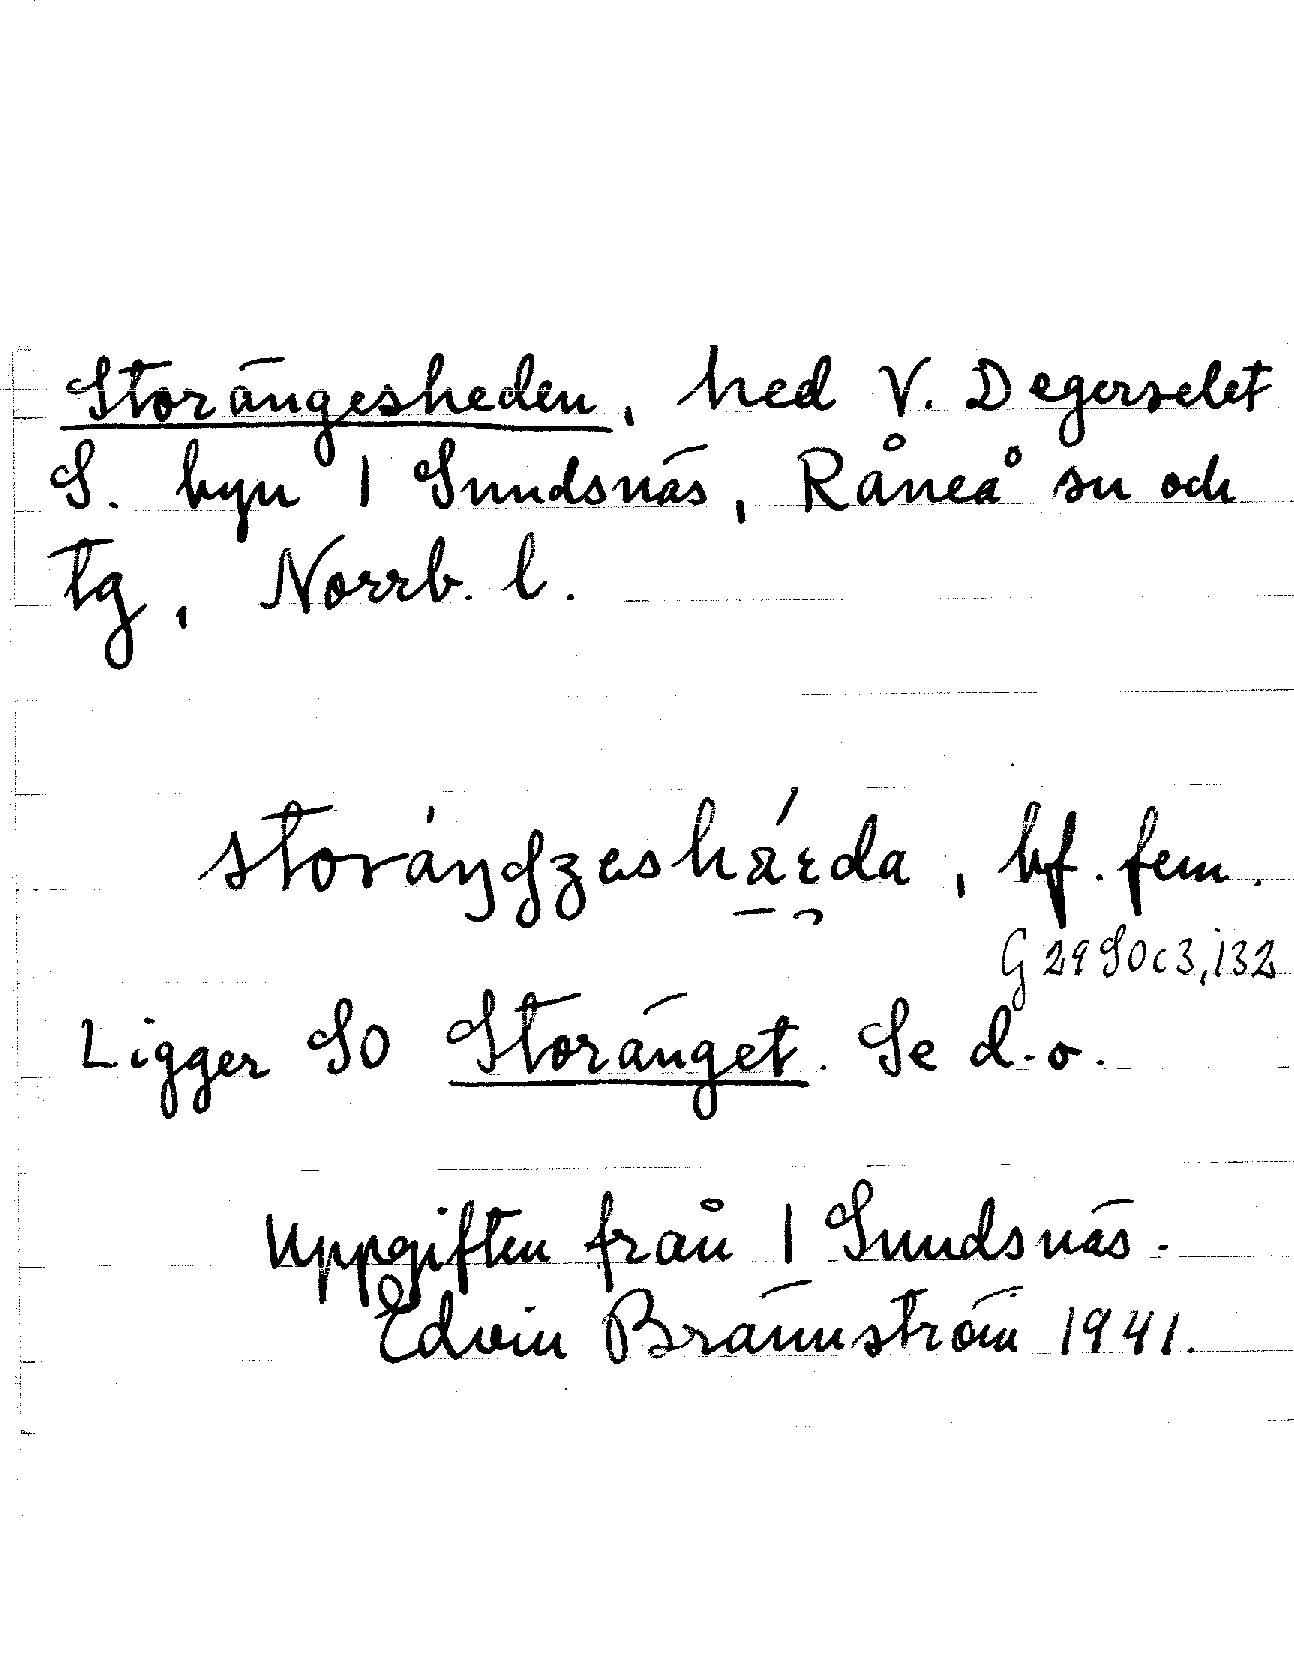 Storängesheden, hed V. Degerselet
S. byn 1 Sundsnäs, Råneå sn och
tg, Norrb. l.
, bf. fem.
G 29 SO c 3, 132
Ligger SO Storänget. Se d.o.
Uppgiften från 1 Sundsnäs.
Edvin Brännström 1941.